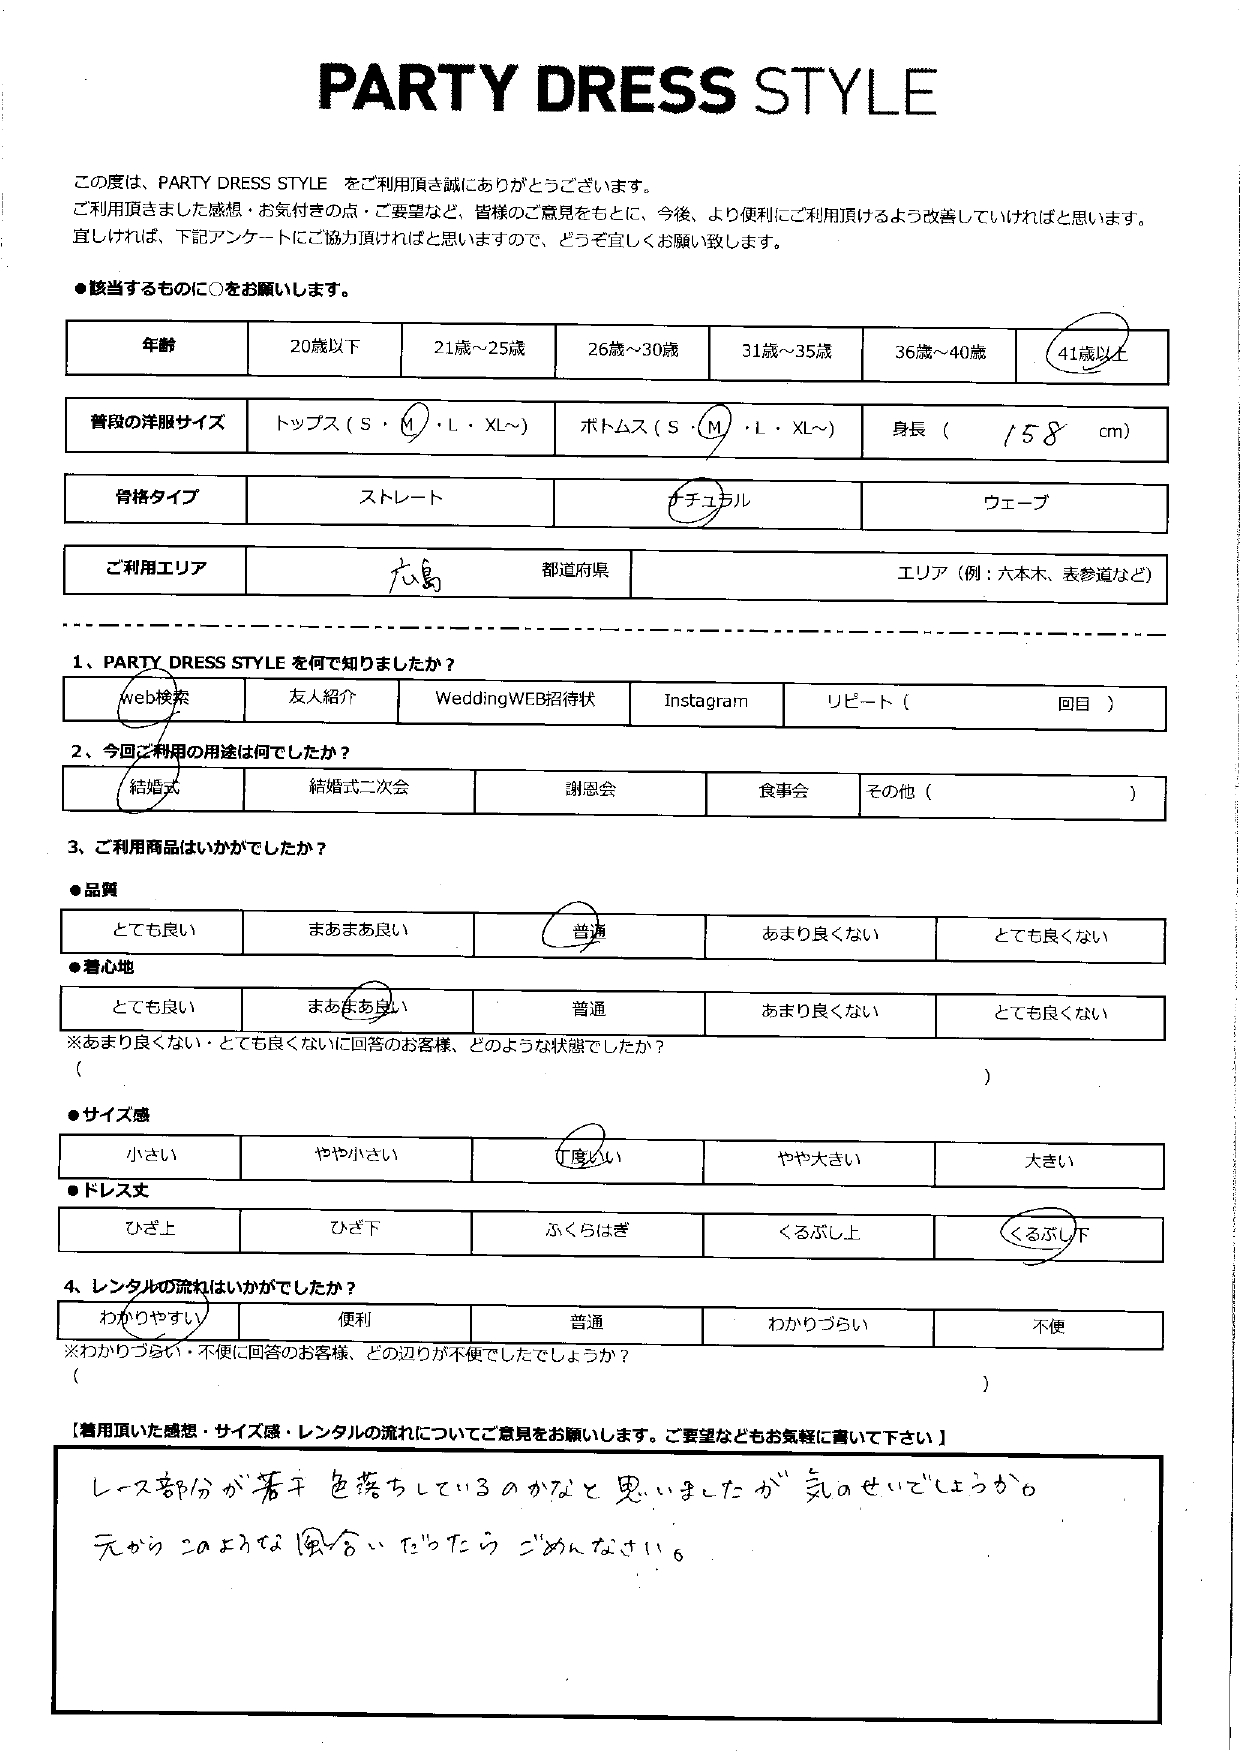 PARTY DRESS STYLE
この度は、PARTY DRESS STYLE をご利用頂き誠にありがとうございます。
ご利用頂きました感想・お気付きの点・ご要望など、皆様のご意見をもとに、今後、より便利にご利用頂けるよう改善していければと思います。
宜しければ、下記アンケートにご協力頂ければと思いますので、どうぞ宜しくお願い致します。
●該当するものに○をお願いします。
年齢 20歳以下 21歳～25歳 26歳～30歳 31歳～35歳 36歳～40歳 41歳以上
普段の洋服サイズ トップス ( S ・ M ・ L ・ XL～) ボトムス ( S ・ M ・ L ・ XL～) 身長 ( 158 cm)
骨格タイプ ストレート ナチュラル ウェーブ
ご利用エリア 広島 都道府県 エリア (例：六本木、表参道など)
1、PARTY DRESS STYLE を何で知りましたか？
web検索 友人紹介 WeddingWEB招待状 Instagram リピート ( 回目 )
2、今回ご利用の用途は何でしたか？
結婚式 結婚式二次会 謝恩会 食事会 その他 ( )
3、ご利用商品はいかがでしたか？
●品質
とても良い まあまあ良い 普通 あまり良くない とても良くない
●着心地
とても良い まあまあ良い 普通 あまり良くない とても良くない
※あまり良くない・とても良くないに回答のお客様、どのような状態でしたか？
( )
●サイズ感
小さい やや小さい 丁度いい やや大きい 大きい
●ドレス丈
ひざ上 ひざ下 ふくらはぎ くるぶし上 くるぶし下
4、レンタルの流れはいかがでしたか？
わかりやすい 便利 普通 わかりづらい 不便
※わかりづらい・不便に回答のお客様、どの辺りが不便でしたでしょうか？
( )
【着用頂いた感想・サイズ感・レンタルの流れについてご意見をお願いします。ご要望などもお気軽に書いて下さい】
レース部分が若干 色落ちしているのかなと 思いましたが 気のせいでしょうか。
元から このような 風合い だったら ごめんなさい。